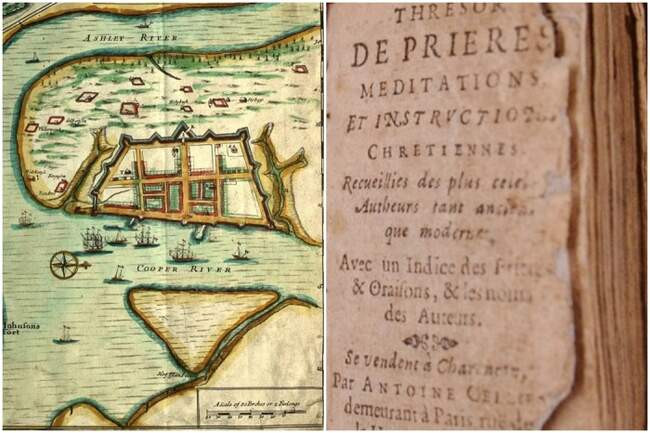 ASHLEY RIVER
COOPER RIVER
Iohnsons
fort
Hog Island
A Scale of 20 Perches or 2 Furlongs
THRESOR
DE PRIERES
MEDITATIONS,
ET INSTRUCTIO
CHRETIENNES.
Recueillies des plus cele
Autheurs tant ancie
que modernes
Avec un Indice des
& Oraisons, & les noms
des Auteurs.
Se vendent à Charenton,
Par ANTOINE CEL
demeurant à Paris rue des